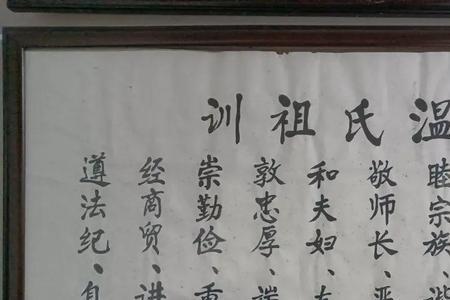 温氏祖训
睦宗族、
敬师长、
和夫妇、
敦忠厚、
崇勤俭、重
经商贸、
遵法纪、